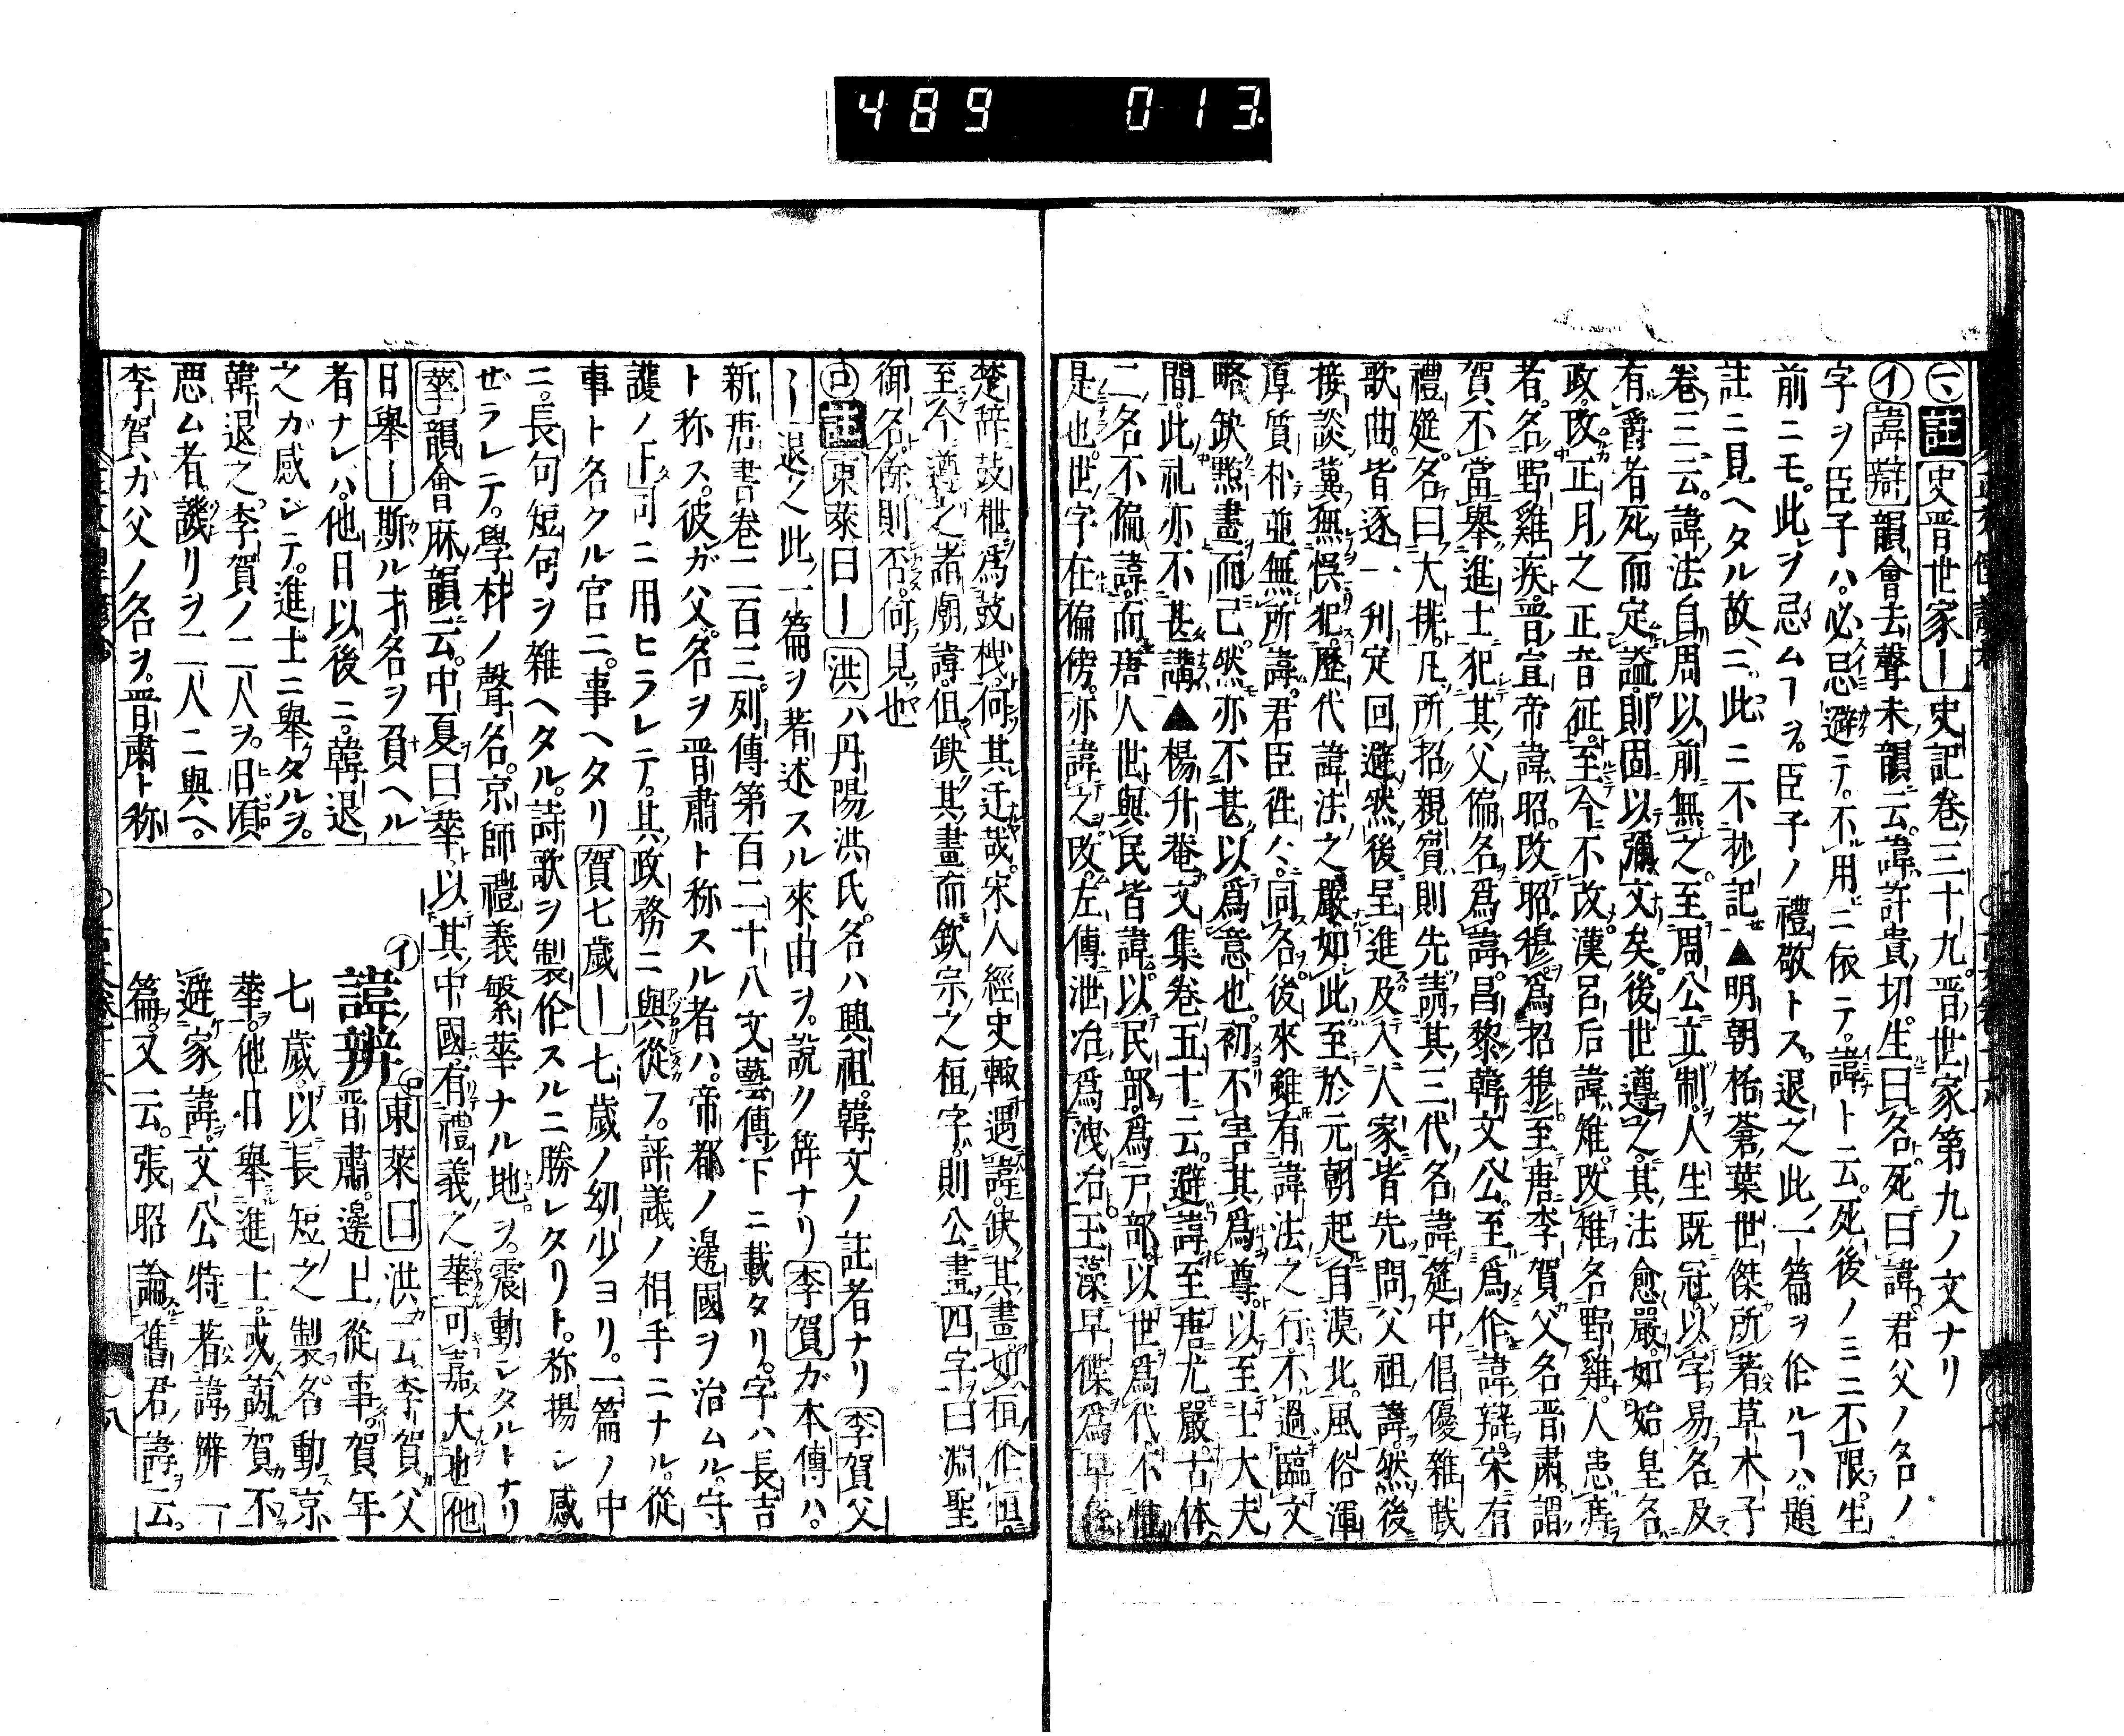 489 013
㆒註史晋世家ー史記卷三十九晋世家第九ノ文ナリ
イ諱辯韻會去聲未韻云諱許貴切生曰名死曰諱君父ノ名ノ
字ヲ臣子ハ必忌避テ不用ニ依テ諱ト云死後ノミニ不限生
前ニモ此ヲ忌ムヿヲ臣子ノ禮敬トス退之此一篇ヲ作ルヿハ題
註ニ見ヘタル故ニ此ニ不抄記▲明朝栝蒼葉世傑所著草木子
卷三云諱法自周以前無之至周公立制人生既冠以字易名及
有爵者死而定謚則固以彌文矣後世遵之其法愈嚴如始皇名
政改正月之正音征至今不改漢呂后諱雉改雉名野雞人患痔
者名野雞疾晋宣帝諱昭改昭穆爲招穆至唐李賀父名晋肅謂
賀不當舉進士犯其父偏名爲諱昌黎韓文公至爲作諱辯宋有
禮筵名曰大排凡所招親賓則先請其三代名諱筵中倡優雜戯
歌曲皆逐一刋定回避然後呈進及入人家皆先問父祖諱然後
接談冀無悞犯歷代諱法之嚴如此至於元朝起自漠北風俗渾
厚質朴並無所諱君臣徃〻同名後來雖有諱法之行不過臨文
略缺點畫而已然亦不甚以爲意也初不害其爲尊以至士大夫
間此礼亦不甚講▲楊升菴文集卷五十云避諱至唐尤嚴古体
二名不偏諱而唐人世與民皆諱以民部爲戸部以世爲代不惟
是也世字在偏傍亦諱之改左傳泄冶爲洩冶玉藻早
楚辞鼓枻爲鼓栧何其迂哉宋人經史輙遇諱缺其畫如桓作
至今遵之諸廟諱但缺其畫而欽宗之桓字則公畫四字曰淵聖
御名餘則否何見也
ロ註東萊曰ー洪ハ丹陽洪氏名ハ興祖韓文ノ註者ナリ李賀父
ー退之此一篇ヲ著述スル來由ヲ説ク辞ナリ李賀ガ本傳ハ
新唐書卷二百三列傳第百二十八文藝傳下ニ載タリ字ハ長吉
ト称ス彼ガ父名ヲ晋肅ト称スル者ハ帝都ノ邊國ヲ治ムル守
護ノ下司ニ用ヒラレテ其政務ニ與從フ評議ノ相手ニナル從
事ト名クル官ニ事ヘタリ賀七歲ー七歲ノ幼少ヨリ一篇ノ中
ニ長句短句ヲ雜ヘタル詩歌ヲ製作スルニ勝レタリト称揚シ感
ゼラレテ學材ノ聲名京師禮義繁華ナル地ヲ震動シタルトナリ
華韻會麻韻云中夏曰華以其中國有禮義之華可嘉大也他
日舉ー斯ル才名ヲ負ヘル
者ナレバ他日以後ニ韓退
之ガ感ジテ進士ニ舉タルヲ
韓退之李賀ノ二人ヲ日頃
悪ム者譏リヲ二人ニ與ヘ
李賀ガ父ノ名ヲ晋肅ト称
イ諱辨ロ東萊曰洪云李賀父
晋肅邊上從事賀年
七歲以長短之製名動京
華他日舉進士或謗賀不
避家諱文公特著諱辨一
篇又云張昭論舊君諱云
八